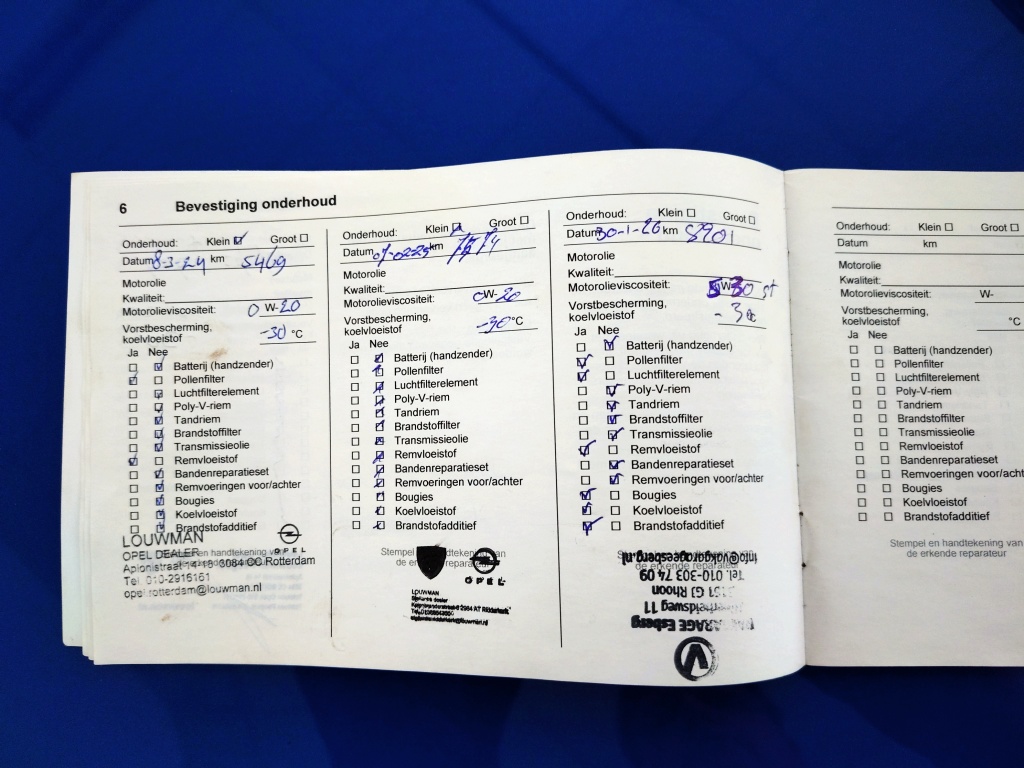 6 Bevestiging onderhoud
Onderhoud: Klein Groot
Datum 8-3-24 km 5469
Motorolie
Kwaliteit:
Motorolieviscositeit: 0 W-20
Vorstbescherming,
koelvloeistof -30 °C
Ja Nee
Batterij (handzender)
Pollenfilter
Luchtfilterelement
Poly-V-riem
Tandriem
Brandstoffilter
Transmissieolie
Remvloeistof
Bandenreparatieset
Remvoeringen voor/achter
Bougies
Koelvloeistof
Brandstofadditief
Stempel en handtekening van
de erkende reparateur
LOUWMAN
OPEL DEALER
OPEL
3084 CC Rotterdam
Tel. 010-2916161
opel.rotterdam@louwman.nl
Onderhoud: Klein Groot
Datum km
Motorolie
Kwaliteit:
Motorolieviscositeit: 0W-20
Vorstbescherming,
koelvloeistof -30 °C
Ja Nee
Batterij (handzender)
Pollenfilter
Luchtfilterelement
Poly-V-riem
Tandriem
Brandstoffilter
Transmissieolie
Remvloeistof
Bandenreparatieset
Remvoeringen voor/achter
Bougies
Koelvloeistof
Brandstofadditief
Stempel en handtekening van
de erkende reparateur
OPEL
LOUWMAN
Onderhoud: Klein Groot
Datum 30-1-26 km 8901
Motorolie
Kwaliteit:
Motorolieviscositeit: 5 W-30
Vorstbescherming,
koelvloeistof °C
Ja Nee
Batterij (handzender)
Pollenfilter
Luchtfilterelement
Poly-V-riem
Tandriem
Brandstoffilter
Transmissieolie
Remvloeistof
Bandenreparatieset
Remvoeringen voor/achter
Bougies
Koelvloeistof
Brandstofadditief
Stempel en handtekening van
de erkende reparateur
V
GARAGE Esberg
11
3161 GJ Rhoon
Tel. 010-303 74 09
info@vakgarageesberg.nl
Onderhoud: Groot
Datum km
Motorolie
Kwaliteit:
Motorolieviscositeit: W-
Vorstbescherming,
koelvloeistof °C
Ja Nee
Batterij (handzender)
Pollenfilter
Luchtfilterelement
Poly-V-riem
Tandriem
Brandstoffilter
Transmissieolie
Remvloeistof
Bandenreparatieset
Remvoeringen voor/achter
Bougies
Koelvloeistof
Brandstofadditief
Stempel en handtekening van
de erkende reparateur